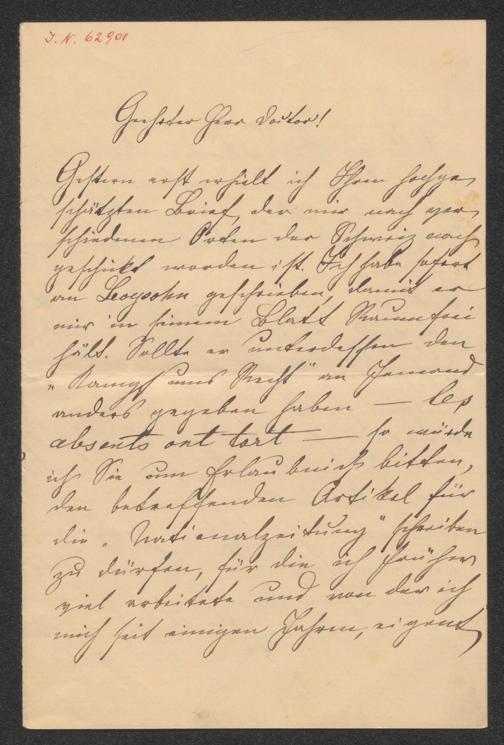 J. N. 62901
Geehrter Herr Doctor!
Gestern erst erhielt ich Ihren hochge-
schätzten Brief, der mir nach ver-
schiedenen Orten der Schweiz nach-
geschickt worden ist. Ich habe sofort
an Levysohn geschrieben, damit er
mir in seinem Blatt Raum frei
hält. Sollte er unterdessen den
"Kampf ums Recht" an Jemand
anders gegeben haben — les
absents ont tort — so würde
ich Sie um Erlaubniß bitten,
den betreffenden Artikel für
die "Nationalzeitung" schreiben
zu dürfen, für die ich früher
viel arbeitete und von der ich
mich seit einigen Jahren, eigent-